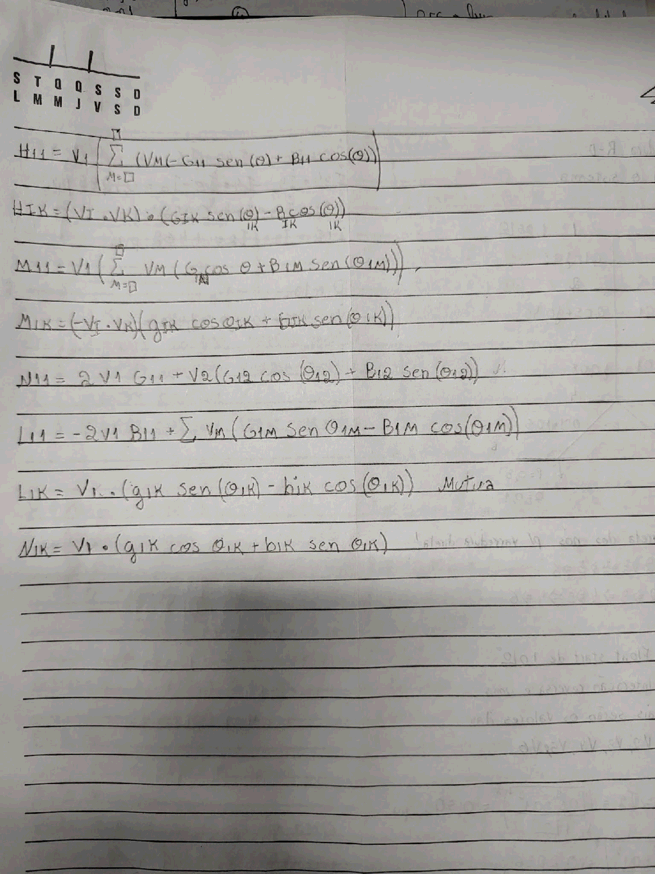 S T Q Q S S D
L M M J V S D
H11 = V1 ( ∑ (VM(-G11 sen(θ) + B11 cos(θ))
M=□
HIK = (VI . VK) . (GIK sen(θ) - B cos(θ))
IK IK IK
M11 = V1 ( ∑ VM (G cos θ + B1M sen(θ1M)))
M=□ 1M
M1K = (-VI . VK)(g1K cos θ1K + b1K sen(θ1K))
N11 = 2 V1 G11 + V2(G12 cos (θ12) + B12 sen(θ12))
L11 = -2V1 B11 + ∑ VM (G1M sen θ1M - B1M cos(θ1M))
L1K = V1 . (g1K sen(θ1K) - b1K cos(θ1K)) Mutua
N1K = V1 . (g1K cos θ1K + b1K sen θ1K)